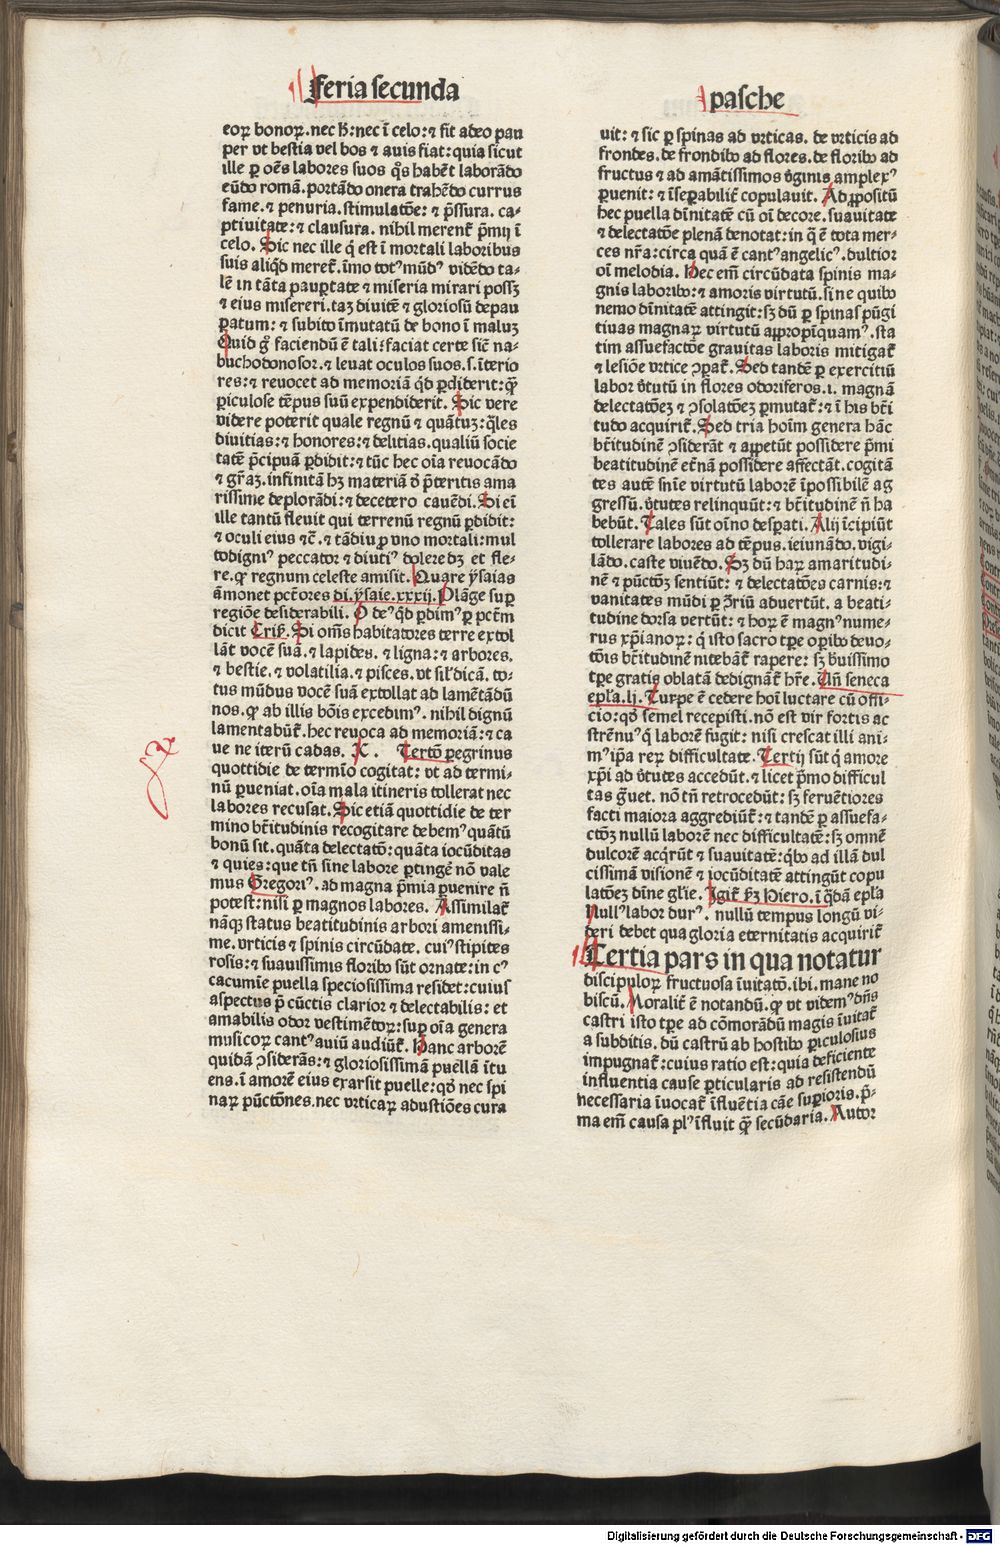 Feria secunda
eoꝝ bonoꝝ. nec h̄: nec ī celo: ⁊ fit adeo pau
per vt bestia vel bos ⁊ auis fiat: quia sicut
ille ꝑ oēs labores suos q̄s habēt laborādo
eūdo romā. portādo onera trahēdo currus
fame. ⁊ penuria. stimulatōe: ⁊ p̄ssura. ca-
ptiuitate: ⁊ clausura. nihil merent̄ p̄mij ī
celo. Sic nec ille q̄ est ī mortali laboribus
suis aliqd̄ meret̄. īmo totꝰ mūdꝰ vidēdo ta-
lē in tāta pauꝑtate ⁊ miseria mirari possꝫ
⁊ eius misereri. taꝫ diuitē ⁊ gloriosū depau
ꝑatum: ⁊ subito īmutatū de bono ī maluꝫ
Quid gͦ faciendū ē tali: faciat certe sic̄ na-
buchodonosor. ⁊ leuat oculos suos. s. īterio
res: ⁊ reuocet ad memoriā qd̄ ꝑdiderit: ꝙ̄
ꝑiculose tēpus suū expendiderit. Sic vere
videre poterit quale regnū ⁊ quātuꝫ: q̄les
diuitias: ⁊ honores: ⁊ delitias. qualiū socie
tatē p̄cipuā ꝑdidit: ⁊ tūc hec oīa reuocādo
⁊ gr̄aꝫ. infinitā hꝫ materiā ꝓ p̄teritis ama
rissime deplorādi: ⁊ decetero cauēdi. Si eī
ille tantū fleuit qui terrenū regnū ꝑdidit:
⁊ oculi eius ⁊c̄. ⁊ tādiu ꝑ vno mortali: mul
todigniꝰ peccator ⁊ diutiꝰ dolere dꝫ et fle-
re. ꝙ regnum celeste amisit. Quare ysaias
āmonet pctōres di. ysaie. xxxij. Plāge suꝑ
regiōe desiderabili. O deꝰ qd̄ ꝑdimꝰ ꝑ pctm̄
dicit Crisͥ. Si om̄s habitatores terre extol
lāt vocē suā. ⁊ lapides. ⁊ ligna: ⁊ arbores.
⁊ bestie. ⁊ volatilia. ⁊ pisces. vt sil̄ dicā. to-
tus mūdus vocē suā extollat ad lamētādū
nos. ꝙ ab illis bōis excedimꝰ. nihil dignū
lamentabūt̄. hec reuoca ad memoriā: ⁊ ca
ue ne iterū cadas. K. Tertō ꝑegrinus
quottidie de termīo cogitat: vt ad termi-
nū ꝑueniat. oīa mala itineris tollerat nec
labores recusat. Sic etiā quottidie de ter
mino bt̄itudinis recogitare debemꝰ quātū
bonū sit. quāta delectatō: quāta iocūditas
⁊ quies: que tn̄ sine labore ꝑtingē nō vale
mus Gregoriꝰ. ad magna p̄mia ꝑuenire n̄
potest: nisi ꝑ magnos labores. Assimilat̄
nāq̄ status beatitudinis arbori amenissi-
me. vrticis ⁊ spinis circūdate. cuiꝰ stipites
rosis: ⁊ suauissimis floribꝰ sūt ornate: in cꝰ
cacumīe puella speciosissima residet: cuius
aspectus p̄ cūctis clarior ⁊ delectabilis: et
amabilis odor vestimētoꝝ: suꝑ oīa genera
musicoꝝ cantꝰ auiū audiūt̄. Hanc arborē
quidā ꝯsiderās: ⁊ gloriosissimā puellā ītu
ens. ī amorē eius exarsit puelle: qd̄ nec spi
naꝝ pūctōnes. nec vrticaꝝ adustiōes cura
pasche
uit: ⁊ sic ꝑ spinas ad vrticas. de vrticis ad
frondes. de frondibꝰ ad flores. de floribꝰ ad
fructus ⁊ ad amātissimos v̄ginis amplexꝰ
ꝑuenit: ⁊ īseꝑabilit̄ copulauit. Ad ꝓpositū
hec puella dīnitatē cū oī decore. suauitate
⁊ delectatōe plenā denotat: in q̄ ē tota mer-
ces nr̄a: circa quā ē cantꝰ angelicꝰ. dultior
oī melodia. Hec em̄ circūdata spinis ma-
gnis laboribꝰ: ⁊ amoris virtutū. sine quibꝰ
nemo dīnitatē attingit: sꝫ dū ꝑ spinas pūgi
tiuas magnaꝝ virtutū aꝓpīquamꝰ. sta
tim assuefactōe grauitas laboris mitigat̄
⁊ lesiōe vrtice ꝯꝑat̄. Sed tandē ꝑ exercitiū
labor v̄tutū in flores odoriferos. i. magnā
delectatōeꝫ ⁊ ꝯsolatōeꝫ ꝑmutat̄: ⁊ ī his bt̄i
tudo acquirit̄. Sed tria hoīm genera hāc
bt̄itudinē ꝯsiderāt ⁊ appetūt possidere p̄mi
beatitudinē et̄nā possidere affectāt. cogitā
tes autē sn̄ie virtutū laborē īpossibilē ag
gressū. v̄tutes relinquūt: ⁊ bt̄itudinē n̄ ha
bebūt. Tales sūt oīno desꝑati. Alij īcipiūt
tollerare labores ad tēpus. ieiunādo. vigi-
lādo. caste viuēdo. Sꝫ dū haꝝ amaritudi-
nē ⁊ pūctōꝫ sentiūt: ⁊ delectatōes carnis: ⁊
vanitates mūdi ꝑ ꝯr̄iū aduertūt. a beati-
tudine dorsa vertūt: ⁊ hoꝝ ē magnꝰ nume-
rus xp̄ianoꝝ: q̄ isto sacro tꝑe oꝑibꝰ deuo-
tōis bt̄itudinē nitebāt̄ rapere: sꝫ breuissimo
tꝑe gratis oblatā dedignāt̄ hr̄e. Uñ seneca
epl̄a. lj. Turpe ē cedere hoī luctare cū offi-
cio: qd̄ semel recepisti. nō est vir fortis ac
strēnuꝰ q̄ laborē fugit: nisi crescat illi ani-
mꝰ ip̄a reꝝ difficultate. Tertij sūt q̄ amore
xp̄i ad v̄tutes accedūt. ⁊ licet p̄mo difficul
tas gͣuet. nō tn̄ retrocedūt: sꝫ feruētiores
facti maiora aggrediūt̄: ⁊ tandē ꝑ assuefa-
ctōꝫ nullū laborē nec difficultatē: sꝫ omnē
dulcorē acq̄rūt ⁊ suauitatē: q̄bꝰ ad illā dul
cissimā visionē ⁊ iocūditatē attingūt copu
latōeꝫ dīne gl̄ie. Igit̄ ẜm Hiero. ī q̄dā epl̄a
Nullꝰ labor durꝰ. nullū tempus longū vi-
deri debet qua gloria eternitatis acquirit̄
Tertia pars in qua notatur
discipuloꝝ fructuosa īuitatō. ibi. mane no
biscū. Moralit̄ ē notandū. ꝙ vt videmꝰ dn̄s
castri isto tꝑe ad cōmorādū magis īuitat̄
a subditis. dū castrū ab hostibꝰ ꝑiculosius
impugnat̄: cuius ratio est: quia deficiente
influentia cause ꝑticularis ad resistendū
necessaria īuocat̄ īfluētia cāe suꝑioris. p̄-
ma em̄ causa plꝰ īfluit ꝙ̄ secūdaria. Autor